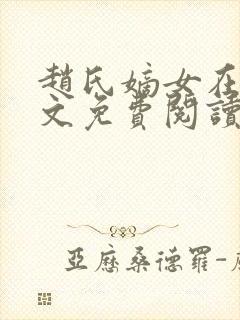 趙氏嫡女在
文免費閱讀
亞歷桑德羅-